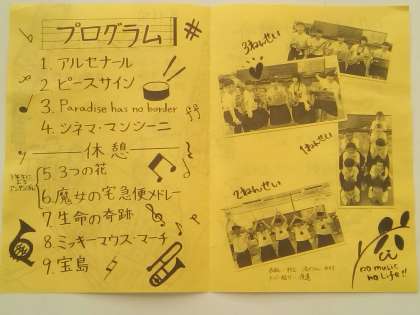 プログラム
1. アルセナール
2. ピースサイン
3. Paradise has no border
4. シネマ・マンシーニ
休憩
5. 3つの花
6. 魔女の宅急便メドレー
7. 生命の奇跡
8. ミッキーマウス・マーチ
9. 宝島
3ねんせい
1ねんせい
2ねんせい
no music
no life!!